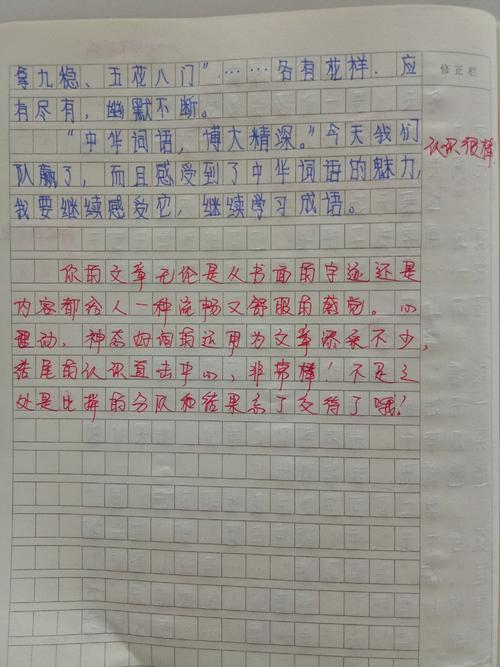 拿九稳、五花八门”……各有花样,应
有尽有,幽默不断。
“中华词语,博大精深。”今天我们
队赢了,而且感受到了中华词语的魅力,
我要继续感受它,继续学习成语。
修正栏
认识很棒
你的文章无论是从书面的字迹还是
内容都给人一种流畅又舒服的感觉。心
理动,神态好词的运用为文章添采不少,
结尾的认识直击中心,非常棒!不足之
处是比赛的分队和结果忘了交待了哦!